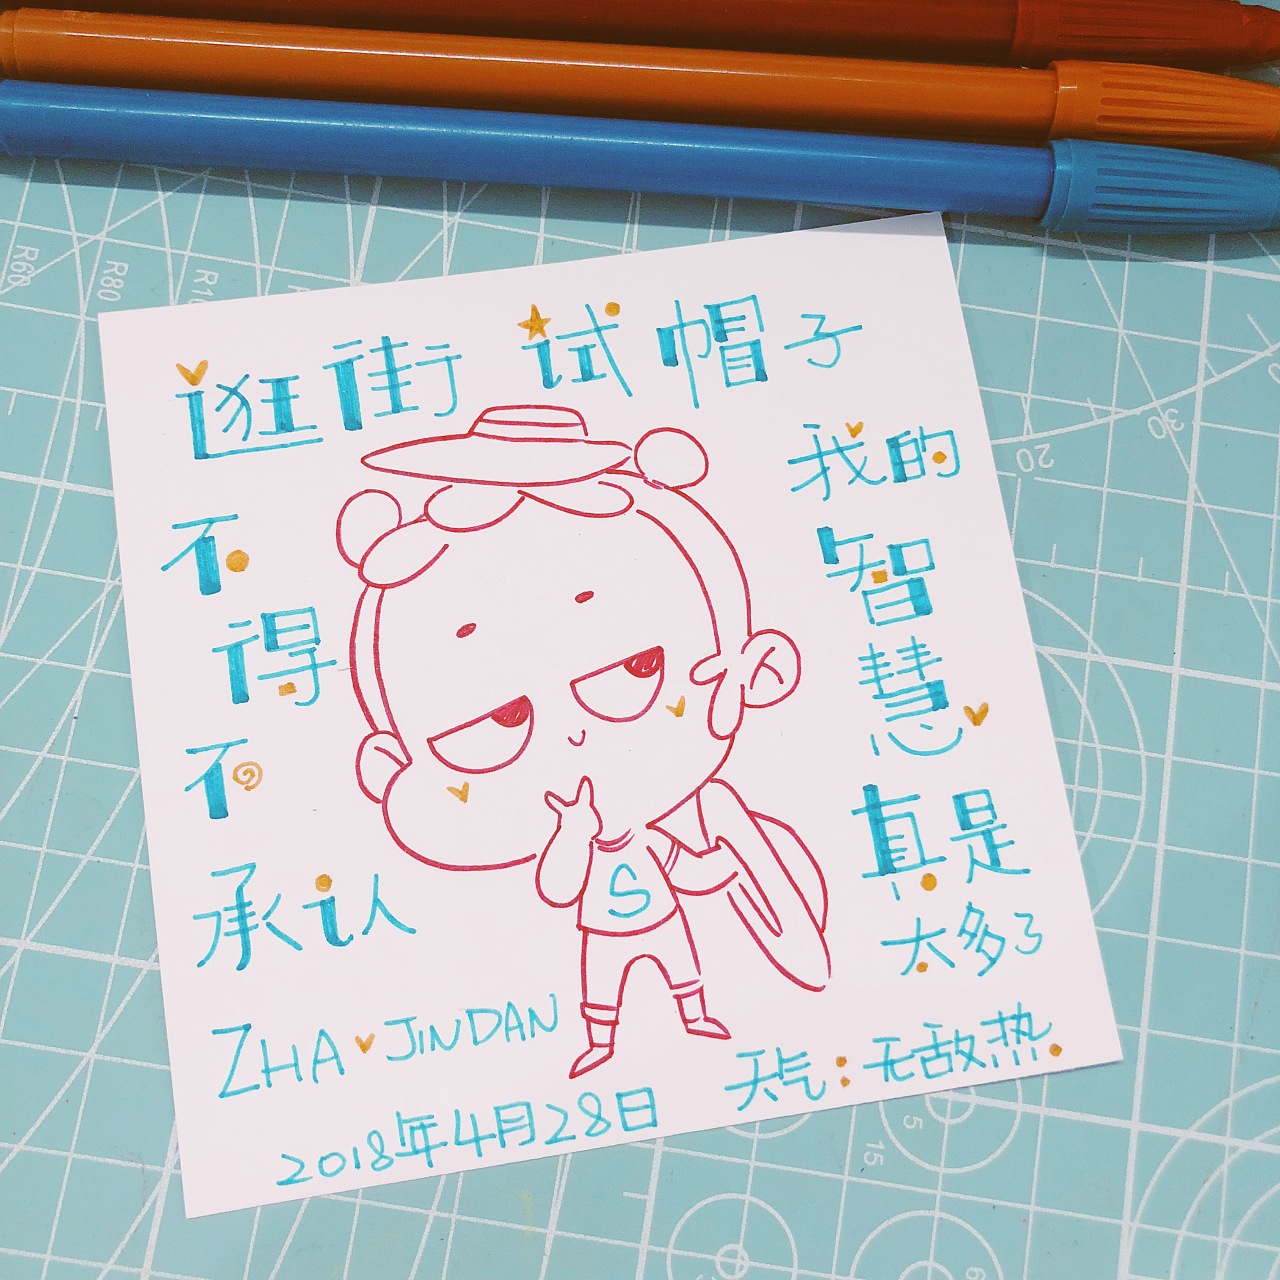 逛街 试帽子
不
得
不
承认
我的
智
慧
真是
太多了
S
ZHA JINDAN
2018年4月28日
天气：无敌热
R60
R80
20
30
5
15